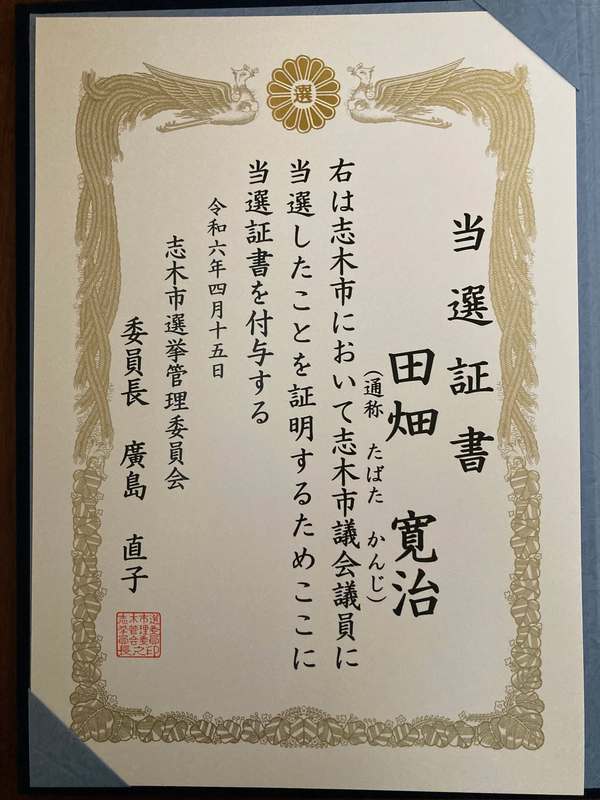 選
当選証書
田畑 寛治
(通称 たばた かんじ)
右は志木市において志木市議会議員に
当選したことを証明するためここに
当選証書を付与する
令和六年四月十五日
志木市選挙管理委員会
委員長 廣島 直子